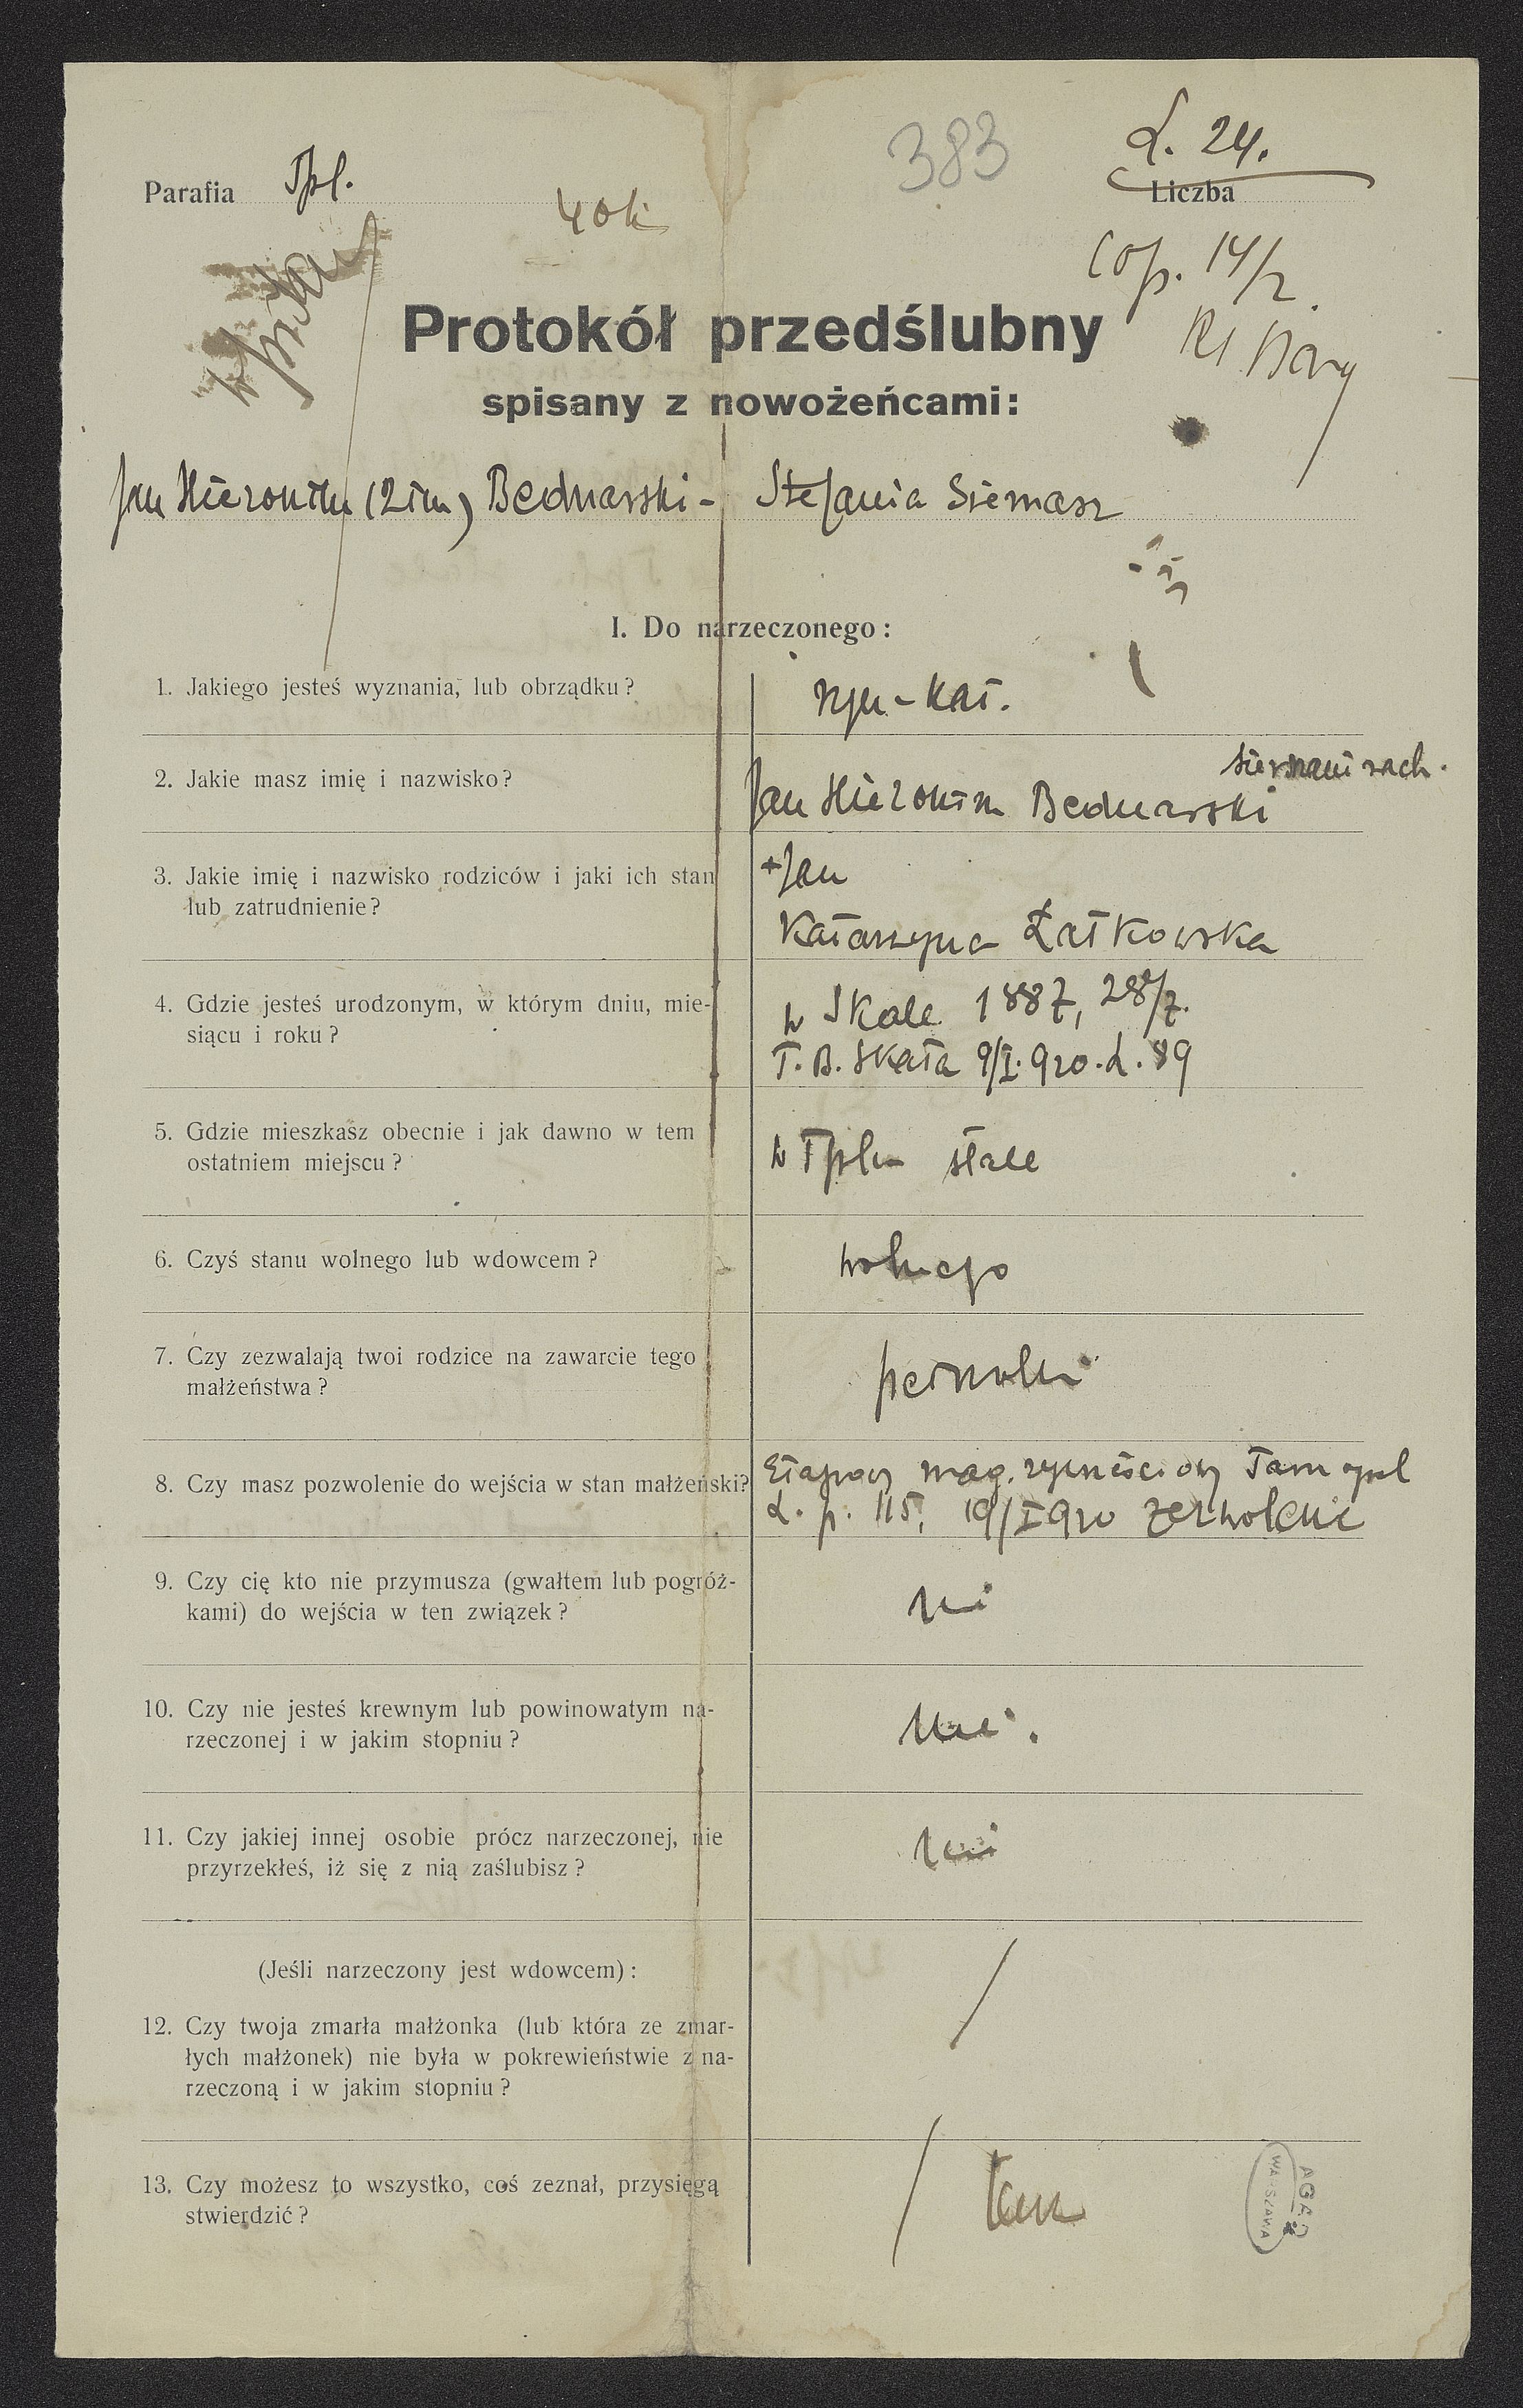 383
L. 24.
Parafia Tpl.
Liczba
40 k
cop. 14/2.
Protokół przedślubny
spisany z nowożeńcami:
Jan Hieronim (2 im) Bednarski - Stefania Siemasz
I. Do narzeczonego:
1. Jakiego jesteś wyznania, lub obrządku?
rzym-kat.
sierżant rach.
2. Jakie masz imię i nazwisko?
Jan Hieronim Bednarski
3. Jakie imię i nazwisko rodziców i jaki ich stan
lub zatrudnienie?
+Jan
Katarzyna Łatkowska
4. Gdzie jesteś urodzonym, w którym dniu, mie-
siącu i roku?
w Skale 1887, 28/7.
T. B. Skała 9/I. 920. L. 89
5. Gdzie mieszkasz obecnie i jak dawno w tem
ostatniem miejscu?
w Tplu stale
6. Czyś stanu wolnego lub wdowcem?
wolnego
7. Czy zezwalają twoi rodzice na zawarcie tego
małżeństwa?
pełnoletni
8. Czy masz pozwolenie do wejścia w stan małżeński?
Etapowy mag. żywnościowy Tarnopol
L. p. 115, 19/I 920 zezwolenie
9. Czy cię kto nie przymusza (gwałtem lub pogróż-
kami) do wejścia w ten związek?
nie
10. Czy nie jesteś krewnym lub powinowatym na-
rzeczonej i w jakim stopniu?
nie.
11. Czy jakiej innej osobie prócz narzeczonej, nie
przyrzekłeś, iż się z nią zaślubisz?
nie
(Jeśli narzeczony jest wdowcem):
12. Czy twoja zmarła małżonka (lub która ze zmar-
łych małżonek) nie była w pokrewieństwie z na-
rzeczoną i w jakim stopniu?
/
13. Czy możesz to wszystko, coś zeznał, przysięgą
stwierdzić?
/
AGAD
WARSZAWA